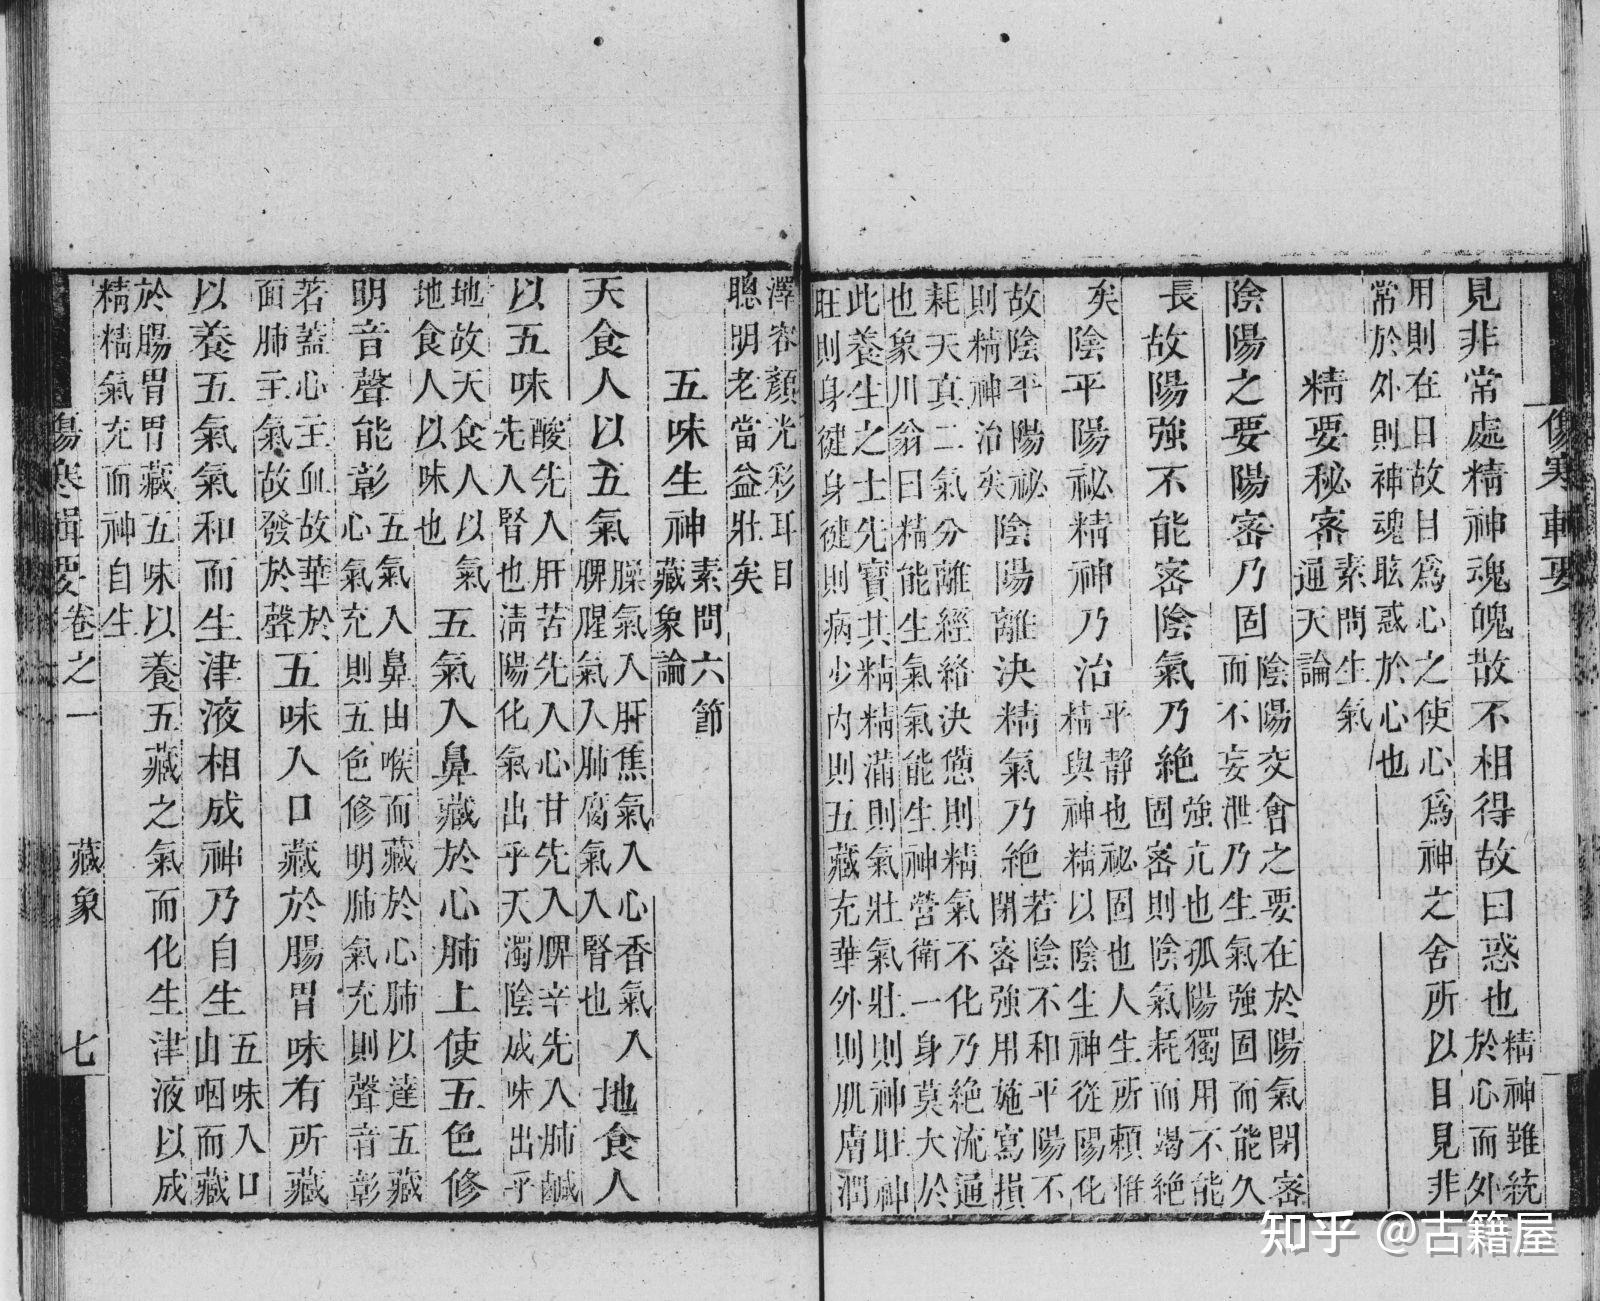 傷寒輯要
見非常處精神魂魄散不相得故曰惑也
精神雖統
於心而外
用則在目故目爲心之使心爲神之舍所以目見非
常於外則神魂眩惑於心也
精要秘密
素問生氣
通天論
陰陽之要陽密乃固
陰陽交會之要在於陽氣閉密
而不妄泄乃生氣強固而能久
長故陽強不能密陰氣乃絶
強亢也孤陽獨用不能
固密則陰氣耗而竭絶
矣陰平陽祕精神乃治
平靜也祕固也人生所賴惟
精與神精以陰生神從陽化
故陰平陽祕
則精神治矣
陰陽離決精氣乃絶
若陰不和平陽不
閉密強用施寫損
耗天真二氣分離經絡決憊則精氣不化乃絶流通
也象川翁曰精能生氣氣能生神營衛一身莫大於
此養生之士先寶其精精滿則氣壯氣壯則神旺神
旺則身健身健則病少內則五藏充華外則肌膚潤
澤容顏光彩耳目
聰明老當益壯矣
五味生神
素問六節
藏象論
天食人以五氣
臊氣入肝焦氣入心香氣入
脾腥氣入肺腐氣入腎也
地食人
以五味
酸先入肝苦先入心甘先入脾辛先入肺鹹
先入腎也淸陽化氣出乎天濁陰成味出乎
地故天食人以氣
地食人以味也
五氣入鼻藏於心肺上使五色修
明音聲能彰
五氣入鼻由喉而藏於心肺以達五藏
心氣充則五色修明肺氣充則聲音彰
若蓋心主血故華於
面肺主氣故發於聲
五味入口藏於腸胃味有所藏
以養五氣氣和而生津液相成神乃自生
五味入口
由咽而藏
於腸胃胃藏五味以養五藏之氣而化生津液以成
精精氣充而神自生
傷寒輯要卷之一 藏象 七
知乎 @古籍屋